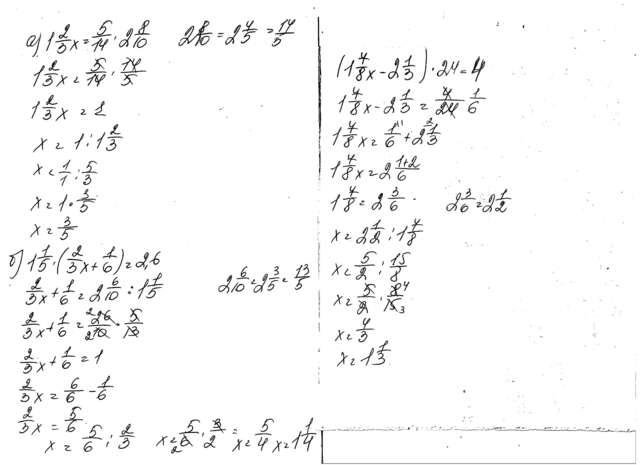 а) 1 2/3 x = 5/14 · 2 8/10    2 8/10 = 2 4/5 = 14/5
1 2/3 x = 5/14 · 14/5
1 2/3 x = 1
x = 1 : 1 2/3
x = 1/1 : 5/3
x = 1 · 3/5
x = 3/5
б) 1 1/5 · (2/3 x + 1/6) = 2,6    2 6/10 = 2 3/5 = 13/5
2/3 x + 1/6 = 2 6/10 : 1 1/5
2/3 x + 1/6 = 26/10 · 5/13
2/3 x + 1/6 = 1
2/3 x = 6/6 - 1/6
2/3 x = 5/6
x = 5/6 : 2/3    x = 5/6 · 3/2 =    x = 5/4    x = 1 1/4
(1 7/8 x - 2 1/3) · 24 = 4
1 7/8 x - 2 1/3 = 4/24 1/6
1 7/8 x = 1/6 + 2 1/3
1 7/8 x = 2 1+2/6
1 7/8 = 2 3/6 ·    2 3/6 = 2 1/2
x = 2 1/2 : 1 7/8
x = 5/2 : 15/8
x = 5/2 · 8/15
x = 4/3
x = 1 1/3